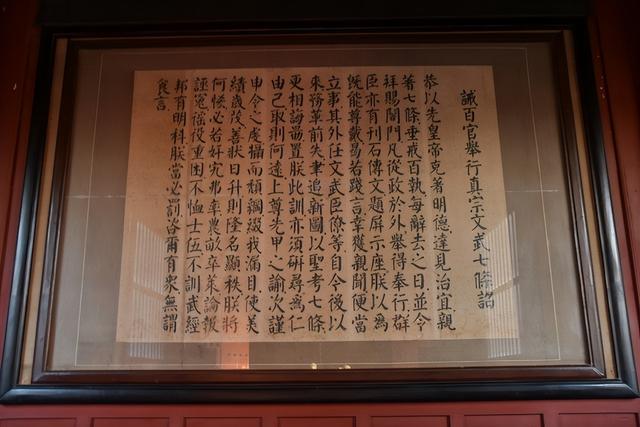 誡百官舉行真宗文武七條詔
恭以先皇帝克著明德達見治宜親
著七條垂戒百執每辭去之日並令
拜賜閤門凡從政於外舉得奉行群
臣亦有刊石傳文題屏示座朕以為
既能尊戴曷若踐言幸獲親聞便當
立事其外任文武臣僚等自今後以
來務革前失聿追新圖以聖考七條
更相誨勗置朕此訓亦須研尋為仁
由己取則何遠上尊先甲之諭次謹
申令之虔而頹綱綴我漏目使美
績歲茂善狀日升則隆名顯秩朕將
何恡必若奸宄弗率農畝卒萊論報
誣冤徭役重困不恤士伍不訓武經
邦有明科朕當必罰咨爾有衆無謂
食言